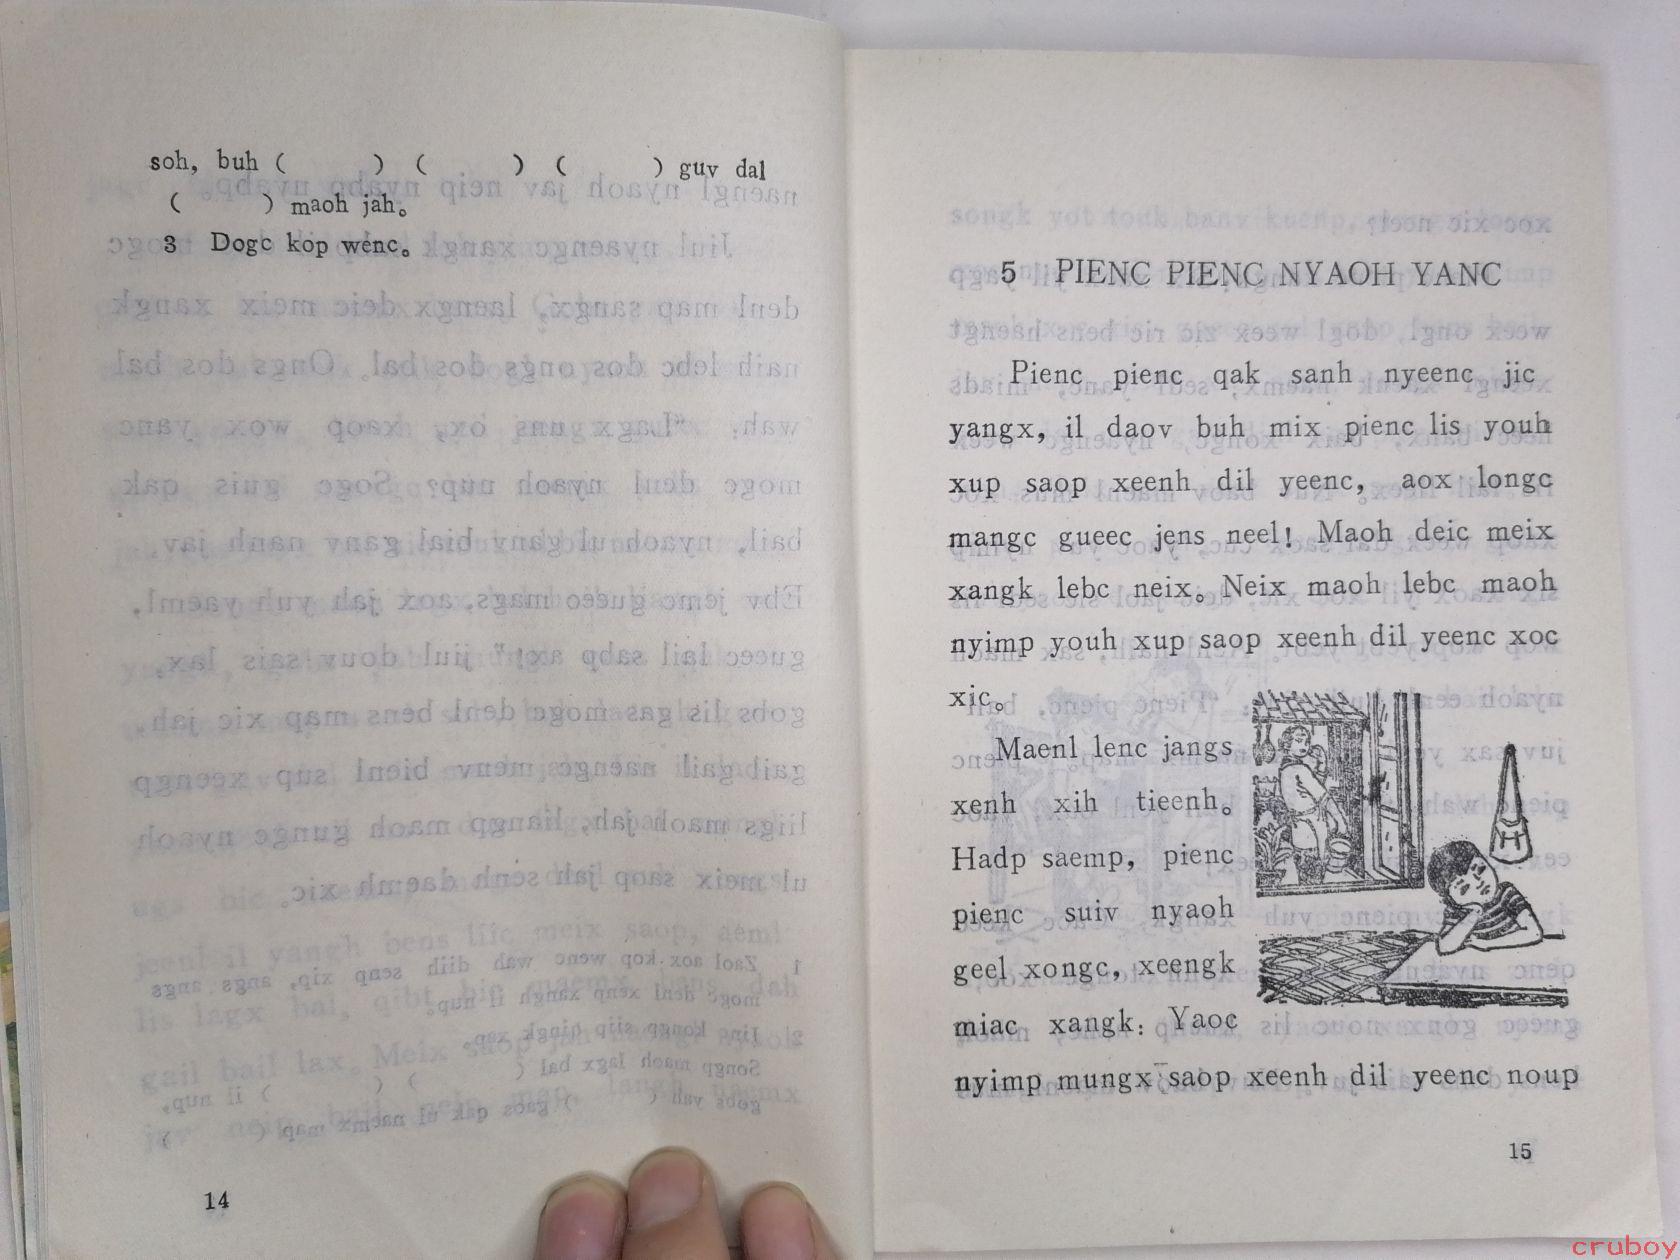 soh, buh (      ) (      ) (      ) guv dal
(      ) maoh jah。
3 Dogc kop wenc。
14
5 PIENC PIENC NYAOH YANC
Pienc pienc qak sanh nyeenc jic
yangx, il daov buh mix pienc lis youh
xup saop xeenh dil yeenc, aox longc
mangc gueec jens neel! Maoh deic meix
xangk lebc neix。Neix maoh lebc maoh
nyimp youh xup saop xeenh dil yeenc xoc
xic。
Maenl lenc jangs
xenh xih tieenh。
Hadp saemp, pienc
pienc suiv nyaoh
geel xongc, xeengk
miac xangk: Yaoc
nyimp mungx saop xeenh dil yeenc noup
15
cruboy